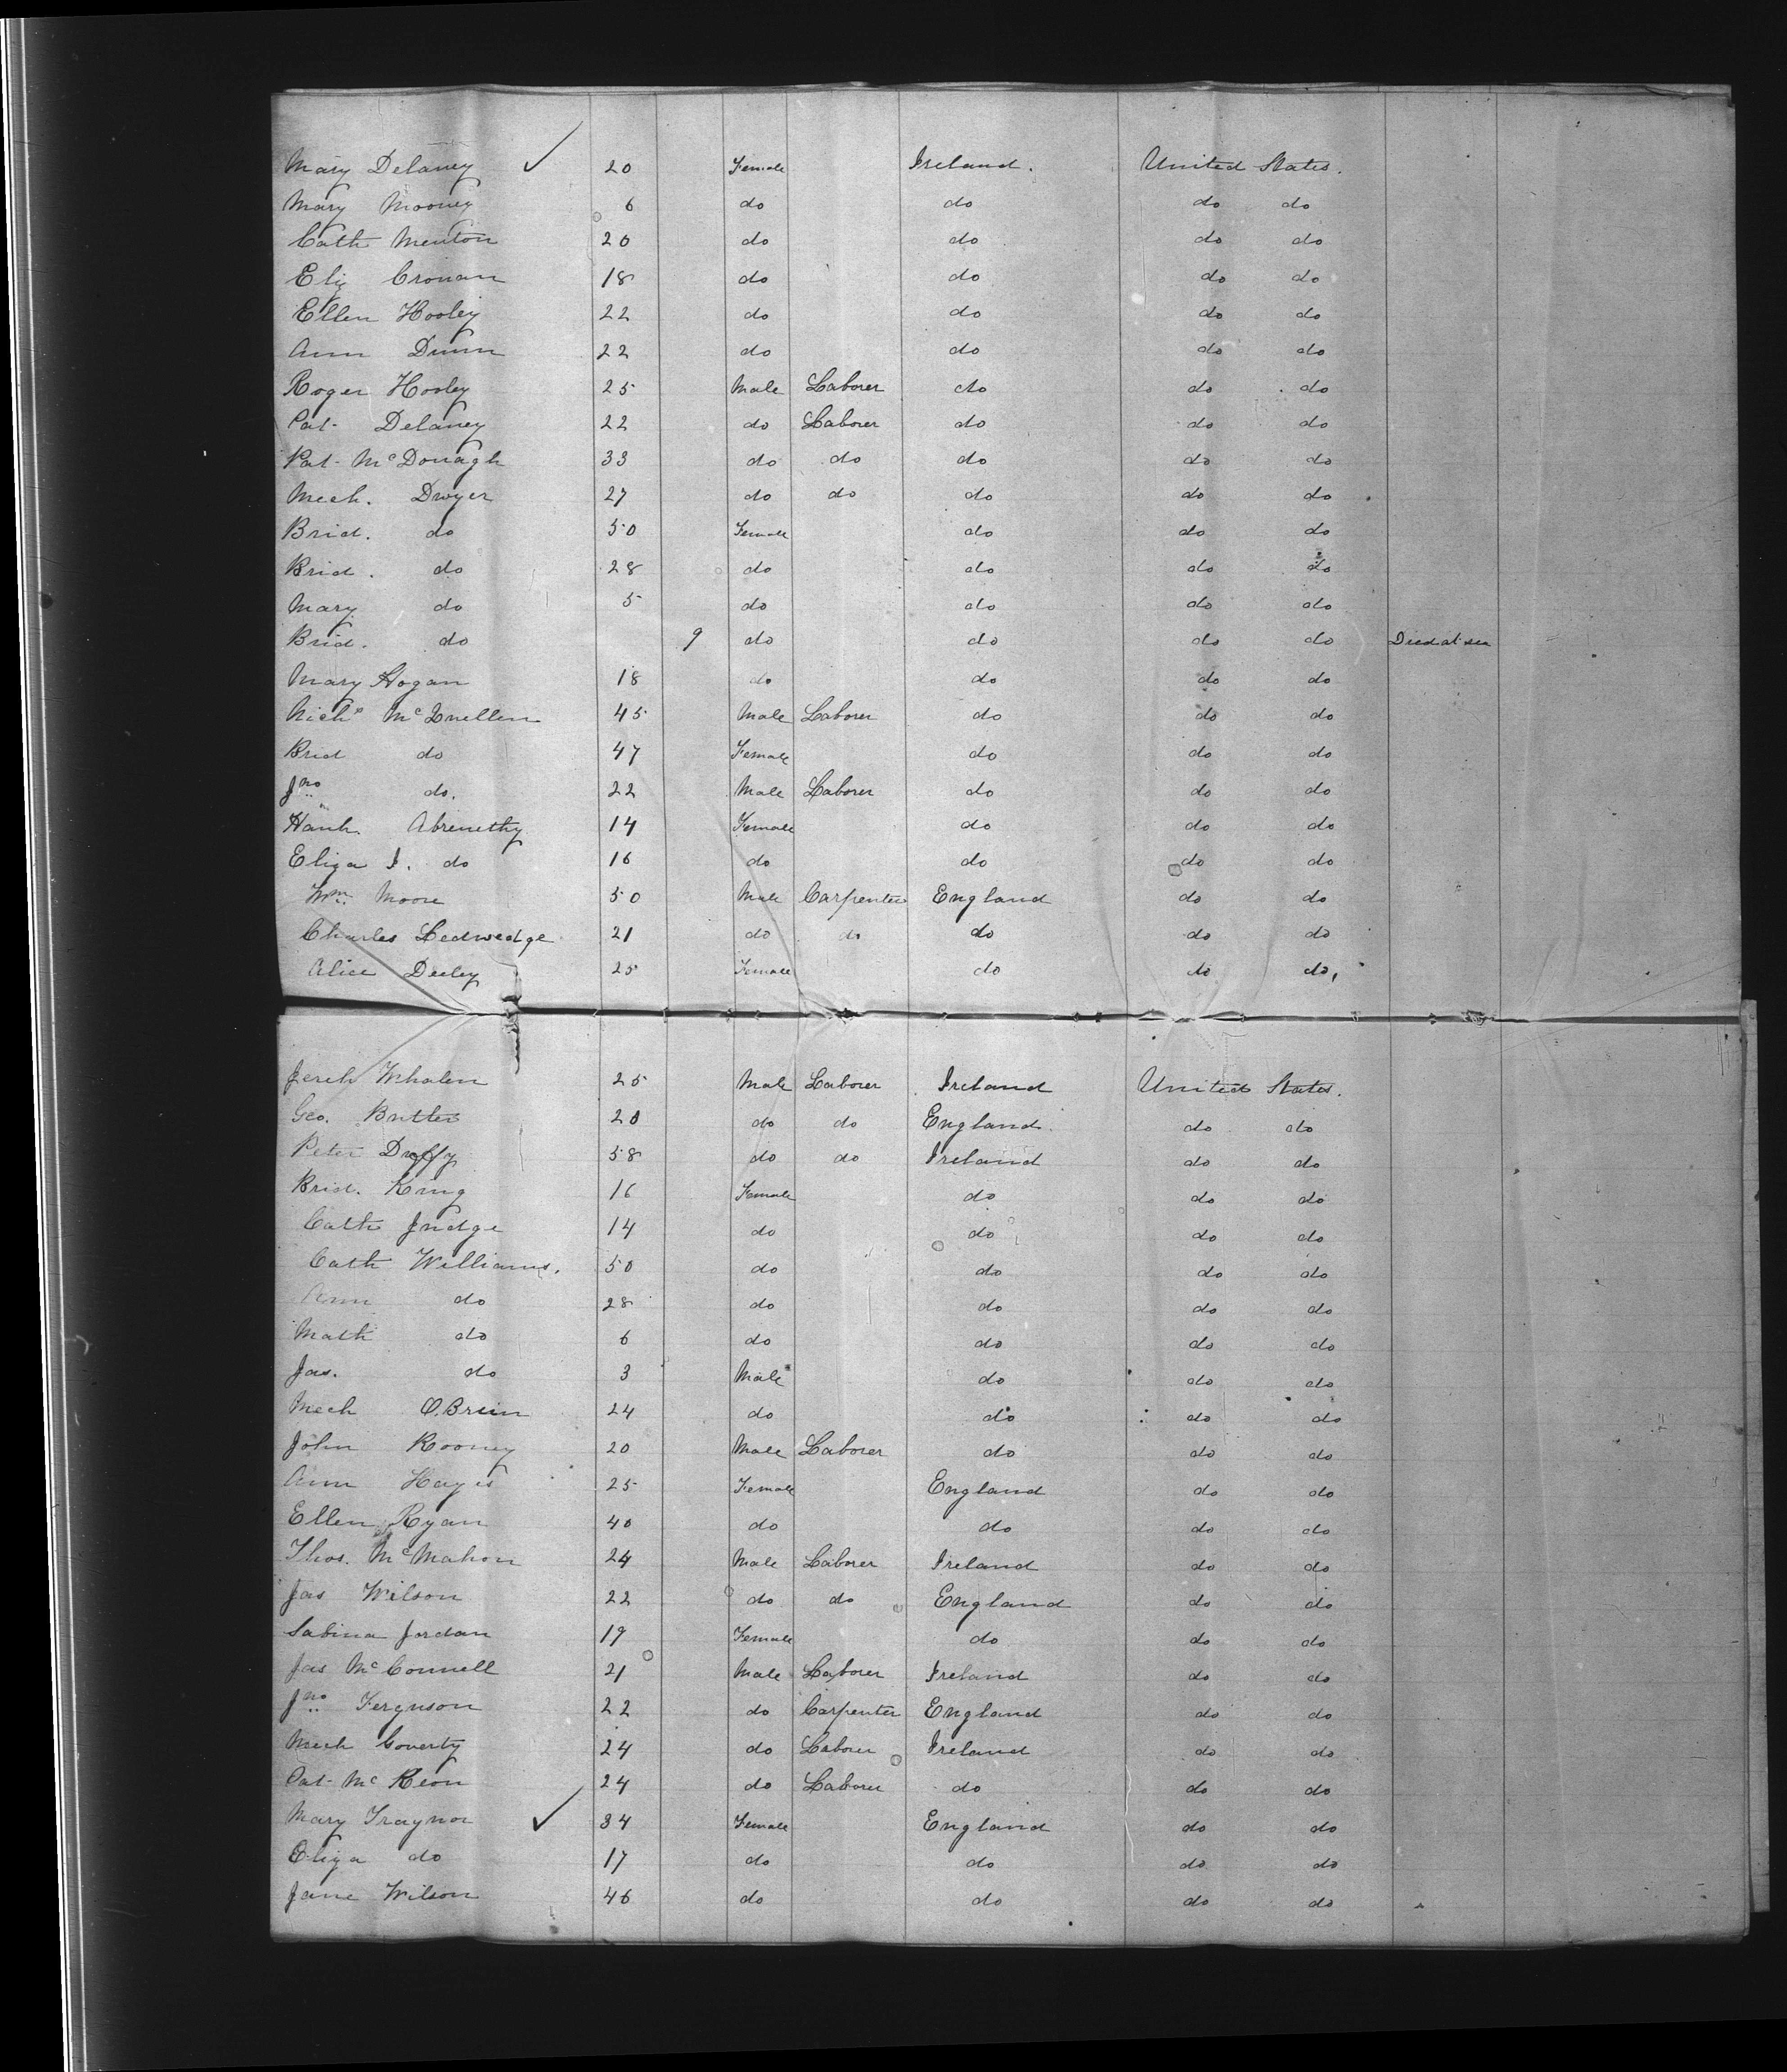 Mary Delaney ✓ 20 Female Ireland. United States.
Mary Mooney 6 do do do do
Cath Menton 20 do do do do
Eliz Cronan 18 do do do do
Ellen Hooley 22 do do do do
Ann Dunn 22 do do do do
Roger Hooley 25 Male Laborer do do do
Pat- Delaney 22 do Laborer do do do
Pat- McDonagh 33 do do do do do
Mich. Dwyer 27 do do do do do
Brid. do 50 Female do do do
Brid. do 28 do do do do
Mary do 5 do do do do
Brid. do 9 do do do do Died at sea
Mary Hogan 18 do do do do
45 Male Laborer do do do
Brid do 47 Female do do do
Jno do. 22 Male Laborer do do do
Hanh. Abrenethy 14 Female do do do
Eliza J. do 16 do do do do
Wm. Moore 50 Male Carpenter England do do
Charles Ledwedge 21 do do do do do
Alice Deeley 25 Female do do do,
Jereh Whalen 25 Male Laborer Ireland United States.
Geo. Butler 20 do do England. do do
Peter Duffy 58 do do Ireland do do
Brid. King 16 Female do do do
Cath Judge 14 do do do do
Cath Williams. 50 do do do do
Ann do 28 do do do do
Math do 6 do do do do
Jas. do 3 Male do do do
Mich O.Brien 24 do do do do
John Rooney 20 Male Laborer do do do
Ann Hayes 25 Female England do do
Ellen Ryan 40 do do do do
Thos. McMahon 24 Male Laborer Ireland do do
Jas Wilson 22 do do England do do
Sabina Jordan 19 Female do do do
Jas McConnell 21 Male Laborer Ireland do do
Jno Ferguson 22 do Carpenter England do do
Mich Goverty 24 do Laborer Ireland do do
Pat- McKeon 24 do Laborer do do do
Mary Traynor ✓ 34 Female England do do
Eliza do 17 do do do do
Jane Wilson 46 do do do do